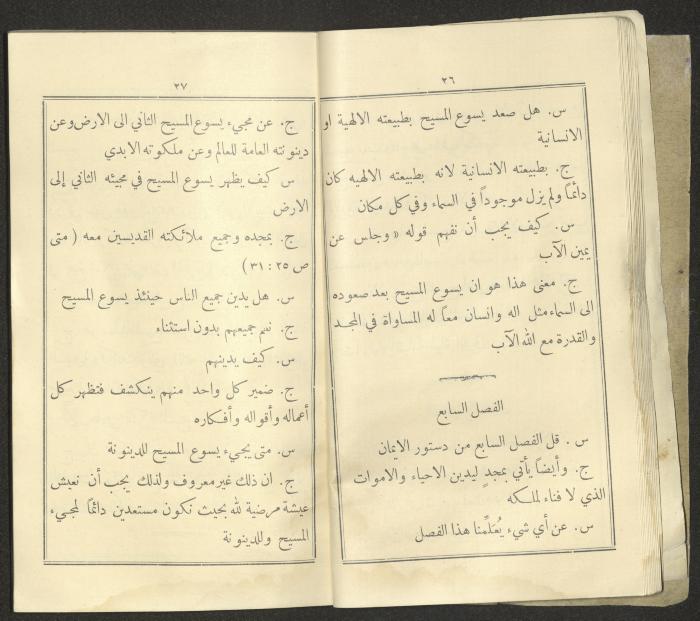 ٢٦
س. هل صعد يسوع المسيح بطبيعته الالهية او
الانسانية
ج. بطبيعته الانسانية لانه بطبيعته الالهيه كان
دائماً ولم يزل موجوداً في السماء وفي كل مكان
س. كيف يجب أن نفهم قوله « وجلس عن
يمين الآب
ج. معنى هذا هو ان يسوع المسيح بعد صعوده
الى السماء مثل اله وانسان معاً له المساواة في المجد
والقدرة مع الله الآب
الفصل السابع
س. قل الفصل السابع من دستور الايمان
ج. وأيضاً يأتي بمجدٍ ليدين الاحياء والاموات
الذي لا فناء لملكه
س. عن أي شيء يُعَلِّمنا هذا الفصل
٢٧
ج. عن مجيء يسوع المسيح الثاني الى الارض وعن
دينونته العامة للعالم وعن ملكوته الابدي
س كيف يظهر يسوع المسيح في مجيئه الثاني إلى
الارض
ج. بمجده وجميع ملائكته القديسين معه ( متى
ص ٢٥ : ٣١ )
س. هل يدين جميع الناس حينئذ يسوع المسيح
ج. نعم جميعهم بدون استثناء
س. كيف يدينهم
ج. ضمير كل واحد منهم ينكشف فتظهر كل
أعماله وأقواله وأفكاره
س. متى يجيء يسوع المسيح للدينونة
ج. ان ذلك غير معروف ولذلك يجب أن نعيش
عيشة مرضية لله بحيث نكون مستعدين دائماً لمجيء
المسيح وللدينونة